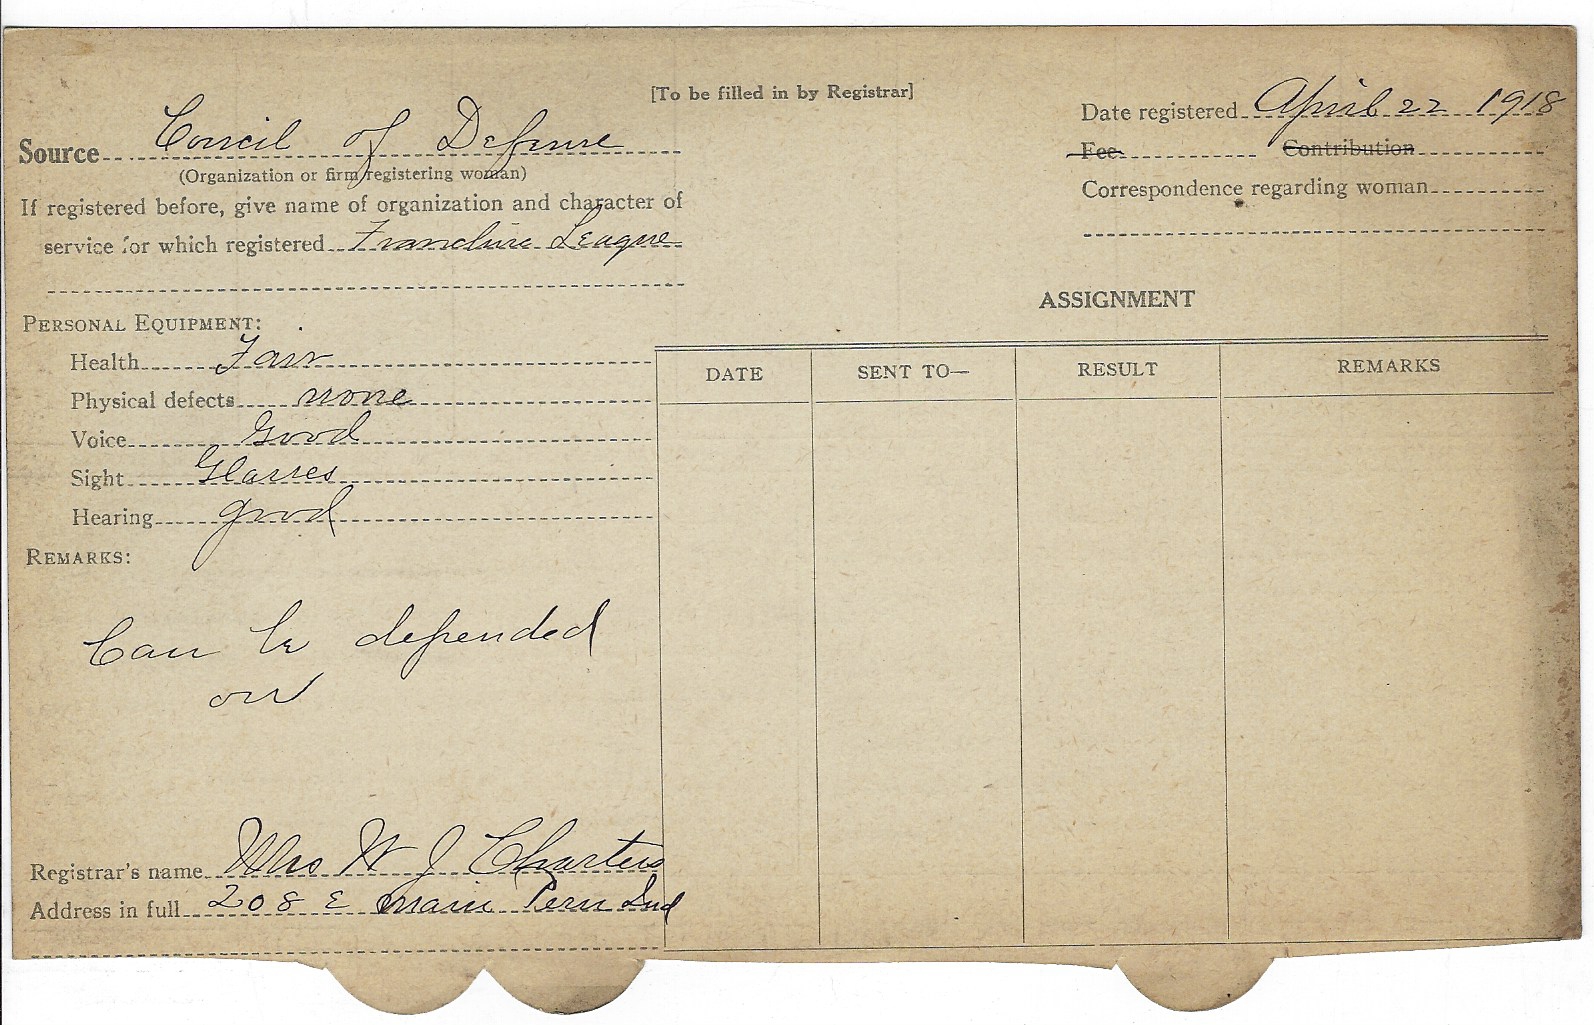 [To be filled in by Registrar]
Date registered April 22 1918
Source Concil of Defense
(Organization or firm registering woman)
Fee Contribution
If registered before, give name of organization and character of
service for which registered Franchise League
Correspondence regarding woman
ASSIGNMENT
PERSONAL EQUIPMENT:
Health Fair
Physical defects none
Voice Good
Sight Glasses
Hearing good
DATE SENT TO— RESULT REMARKS
REMARKS:
Can be depended
on
Registrar's name Mrs W J Charters
Address in full 208 E Main Peru Ind